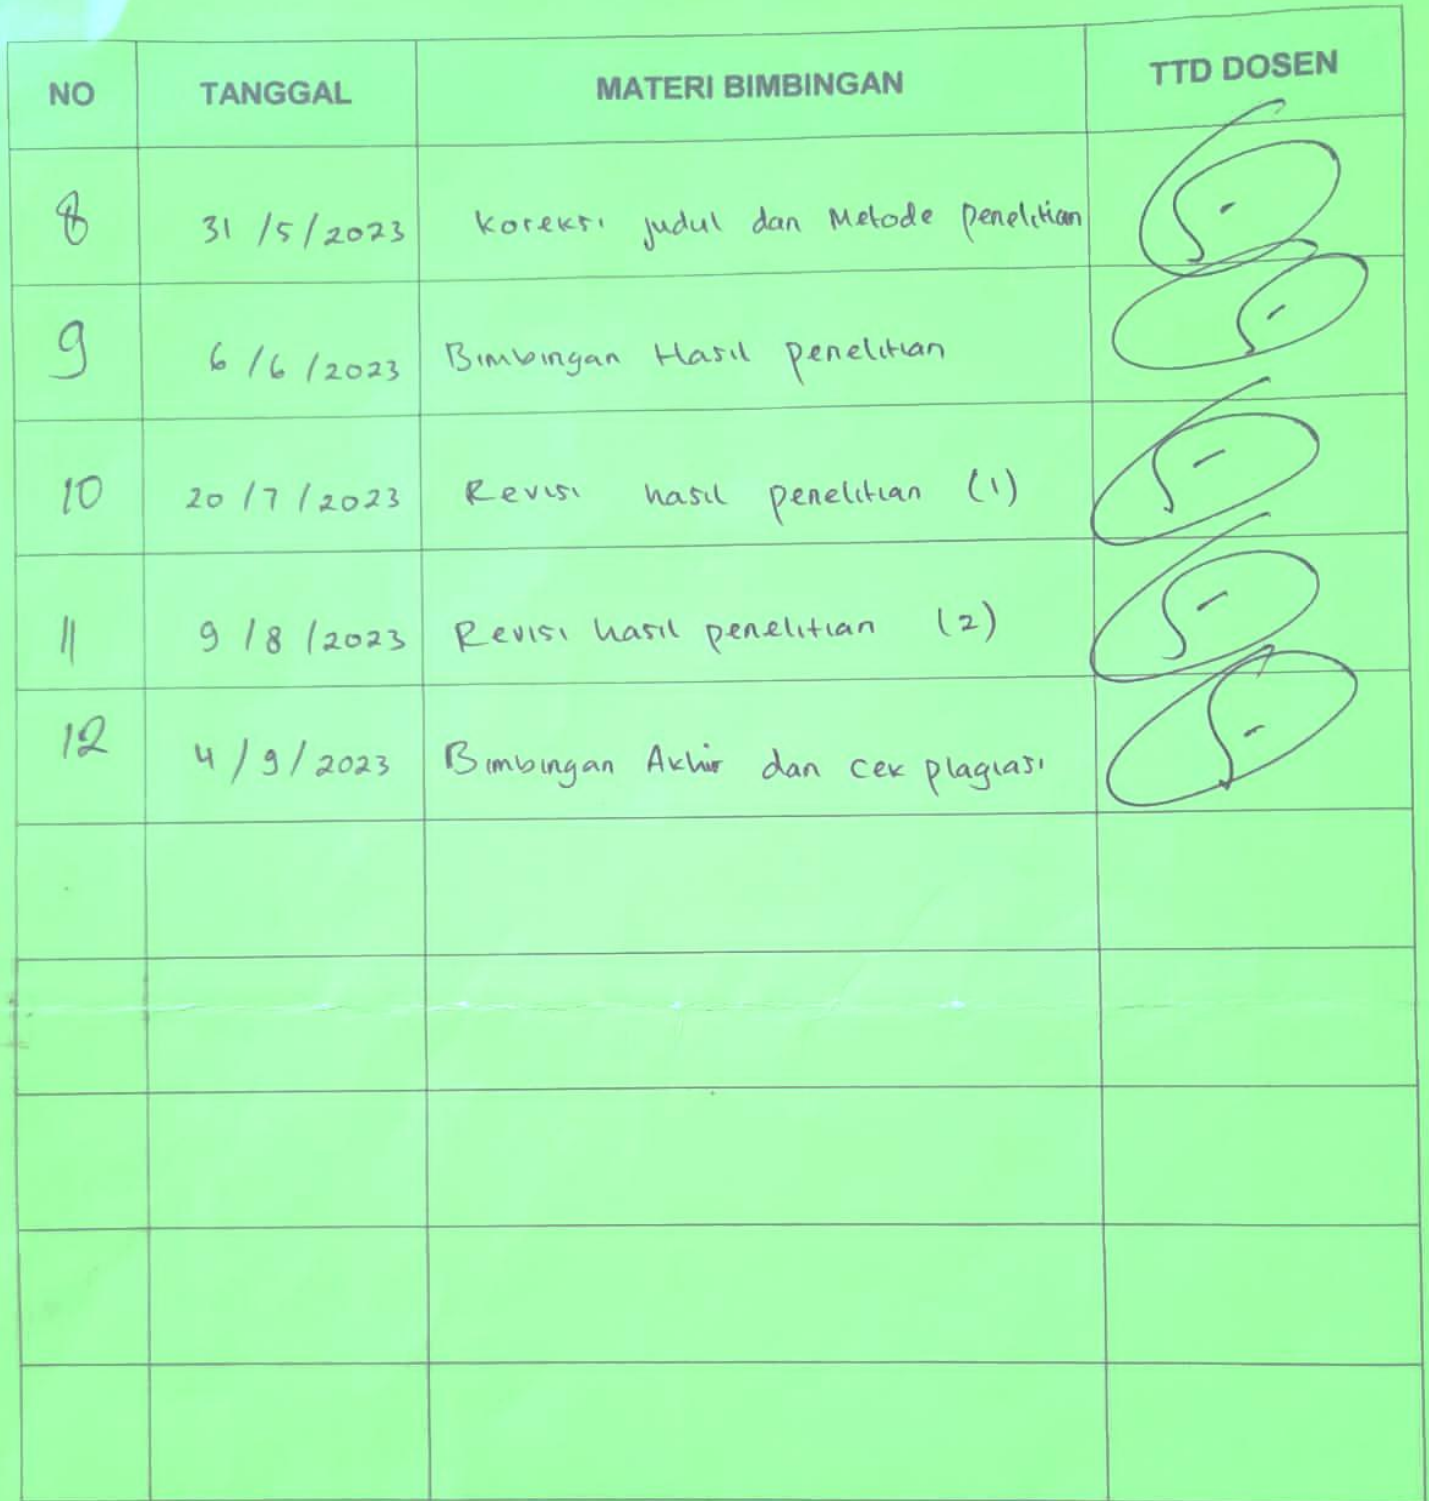 NO TANGGAL MATERI BIMBINGAN TTD DOSEN
8 31/5/2023 Koreksi judul dan Metode penelitian
9 6/6/2023 Bimbingan Hasil penelitian
10 20/7/2023 Revisi hasil penelitian (1)
11 9/8/2023 Revisi hasil penelitian (2)
12 4/9/2023 Bimbingan Akhir dan cek plagiasi